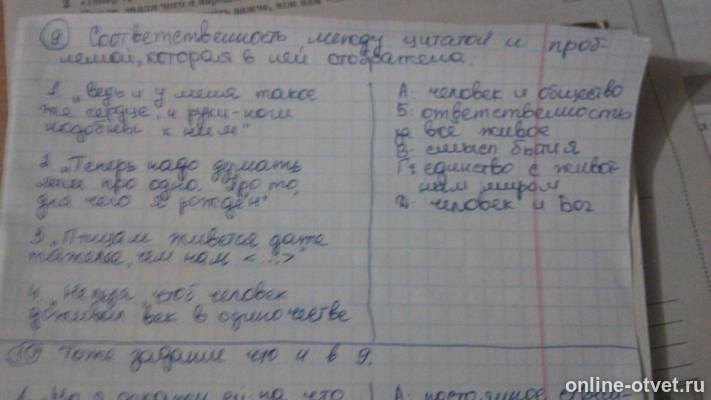 9 Соответственность между цитатой и проб-
лемой, которая в ней отображена.
1 „Ведь и у меня такое
же сердце, и руки-ноги
подобны к ним"
2 „Теперь надо думать
мне про одно. Про то,
для чего я рождён"
3 „Птицам живётся даже
тяжелее, чем нам, <...>"
4 „Нельзя, чтоб человек
доживал век в одиночестве
А: человек и общество
Б: ответственность
за всё живое
В: смысл бытия
Г: единство с живо-
ным миром
Д: человек и Бог
10 Тоже задание что и в 9.
А: постоянное
online-otvet.ru